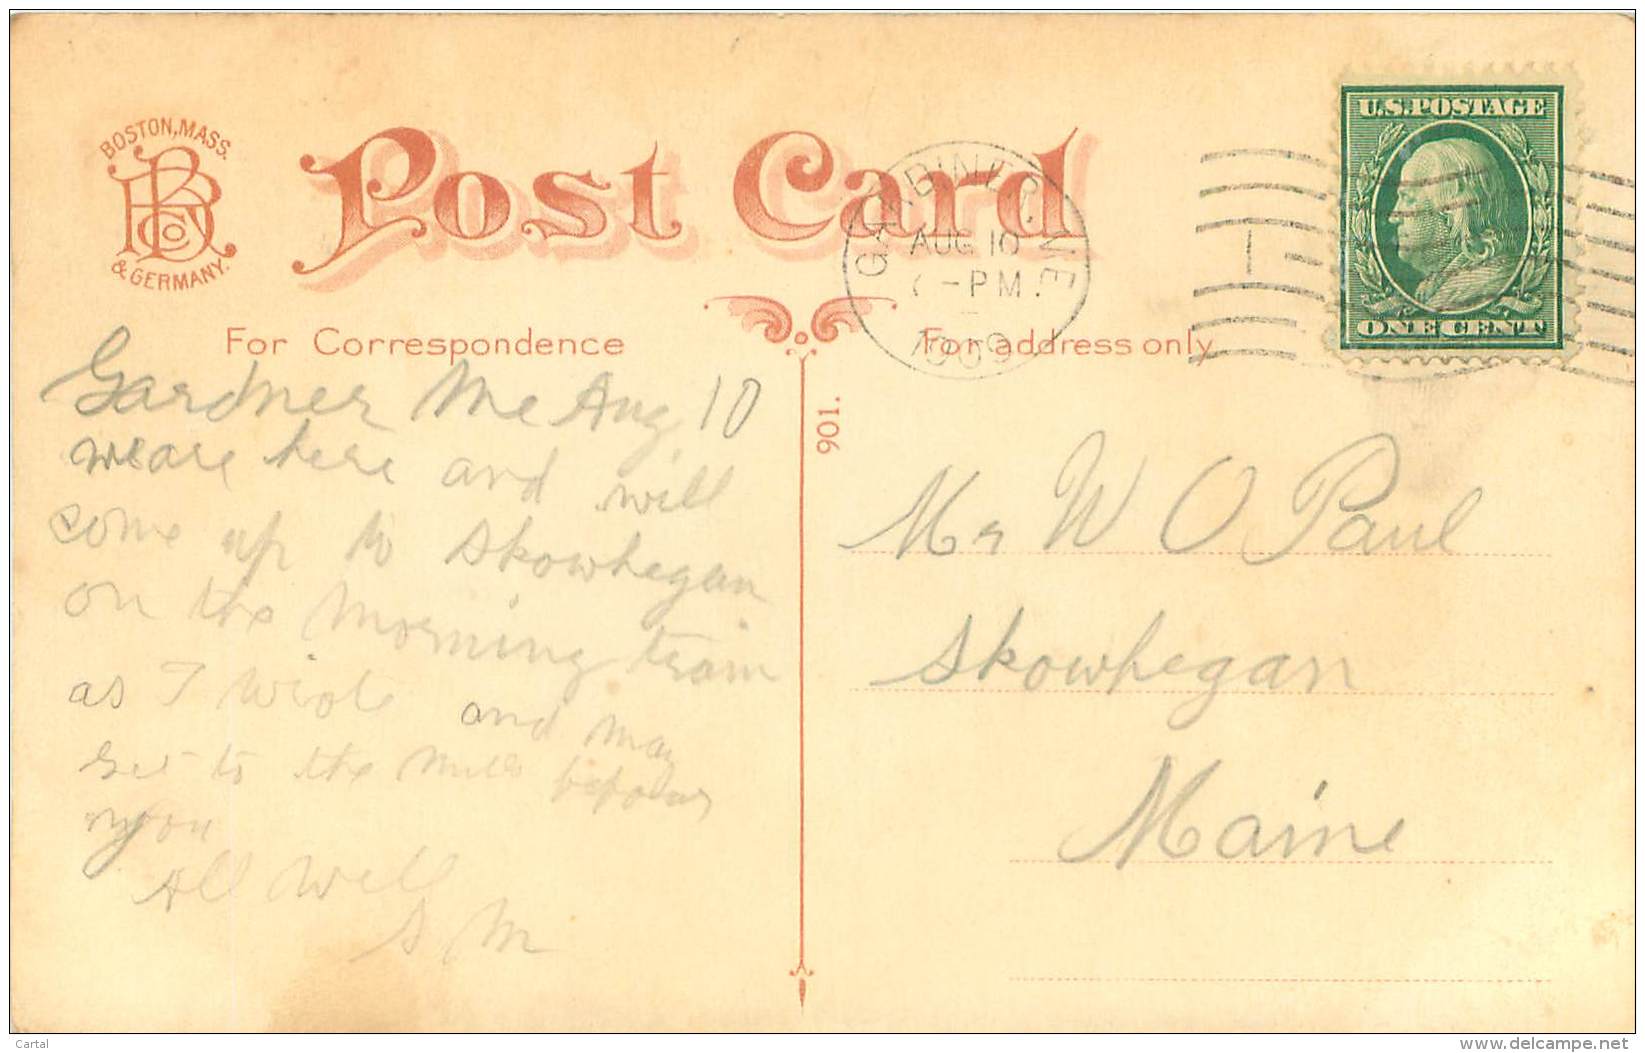 BOSTON, MASS.
& GERMANY.
Post Card
GARDINER, ME
AUG 10
-PM.
1909
U.S. POSTAGE
ONE CENT
For Correspondence
For address only
901.
Gardner Me Aug 10
we are here and will
come up to Skowhegan
on the Morning train
as I wrote and may
get to the Mill before
you
All Well
S M
Mr W O Paul
Skowhegan
Maine
Cartal
www.delcampe.net